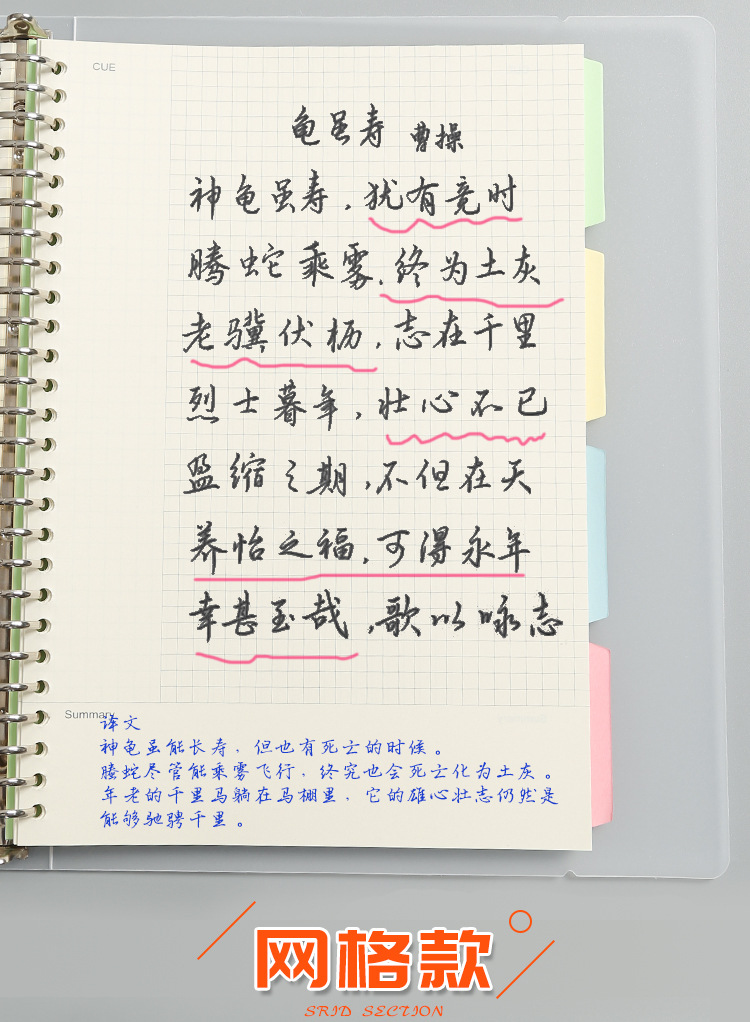 CUE
龟虽寿 曹操
神龟虽寿，犹有竟时
腾蛇乘雾，终为土灰
老骥伏枥，志在千里
烈士暮年，壮心不已
盈缩之期，不但在天
养怡之福，可得永年
幸甚至哉，歌以咏志
Summary
译文
神龟虽能长寿，但也有死亡的时候。
腾蛇尽管能乘雾飞行，终究也会死亡化为土灰。
年老的千里马躺在马棚里，它的雄心壮志仍然是
能够驰骋千里。
网格款
SRID SECTION